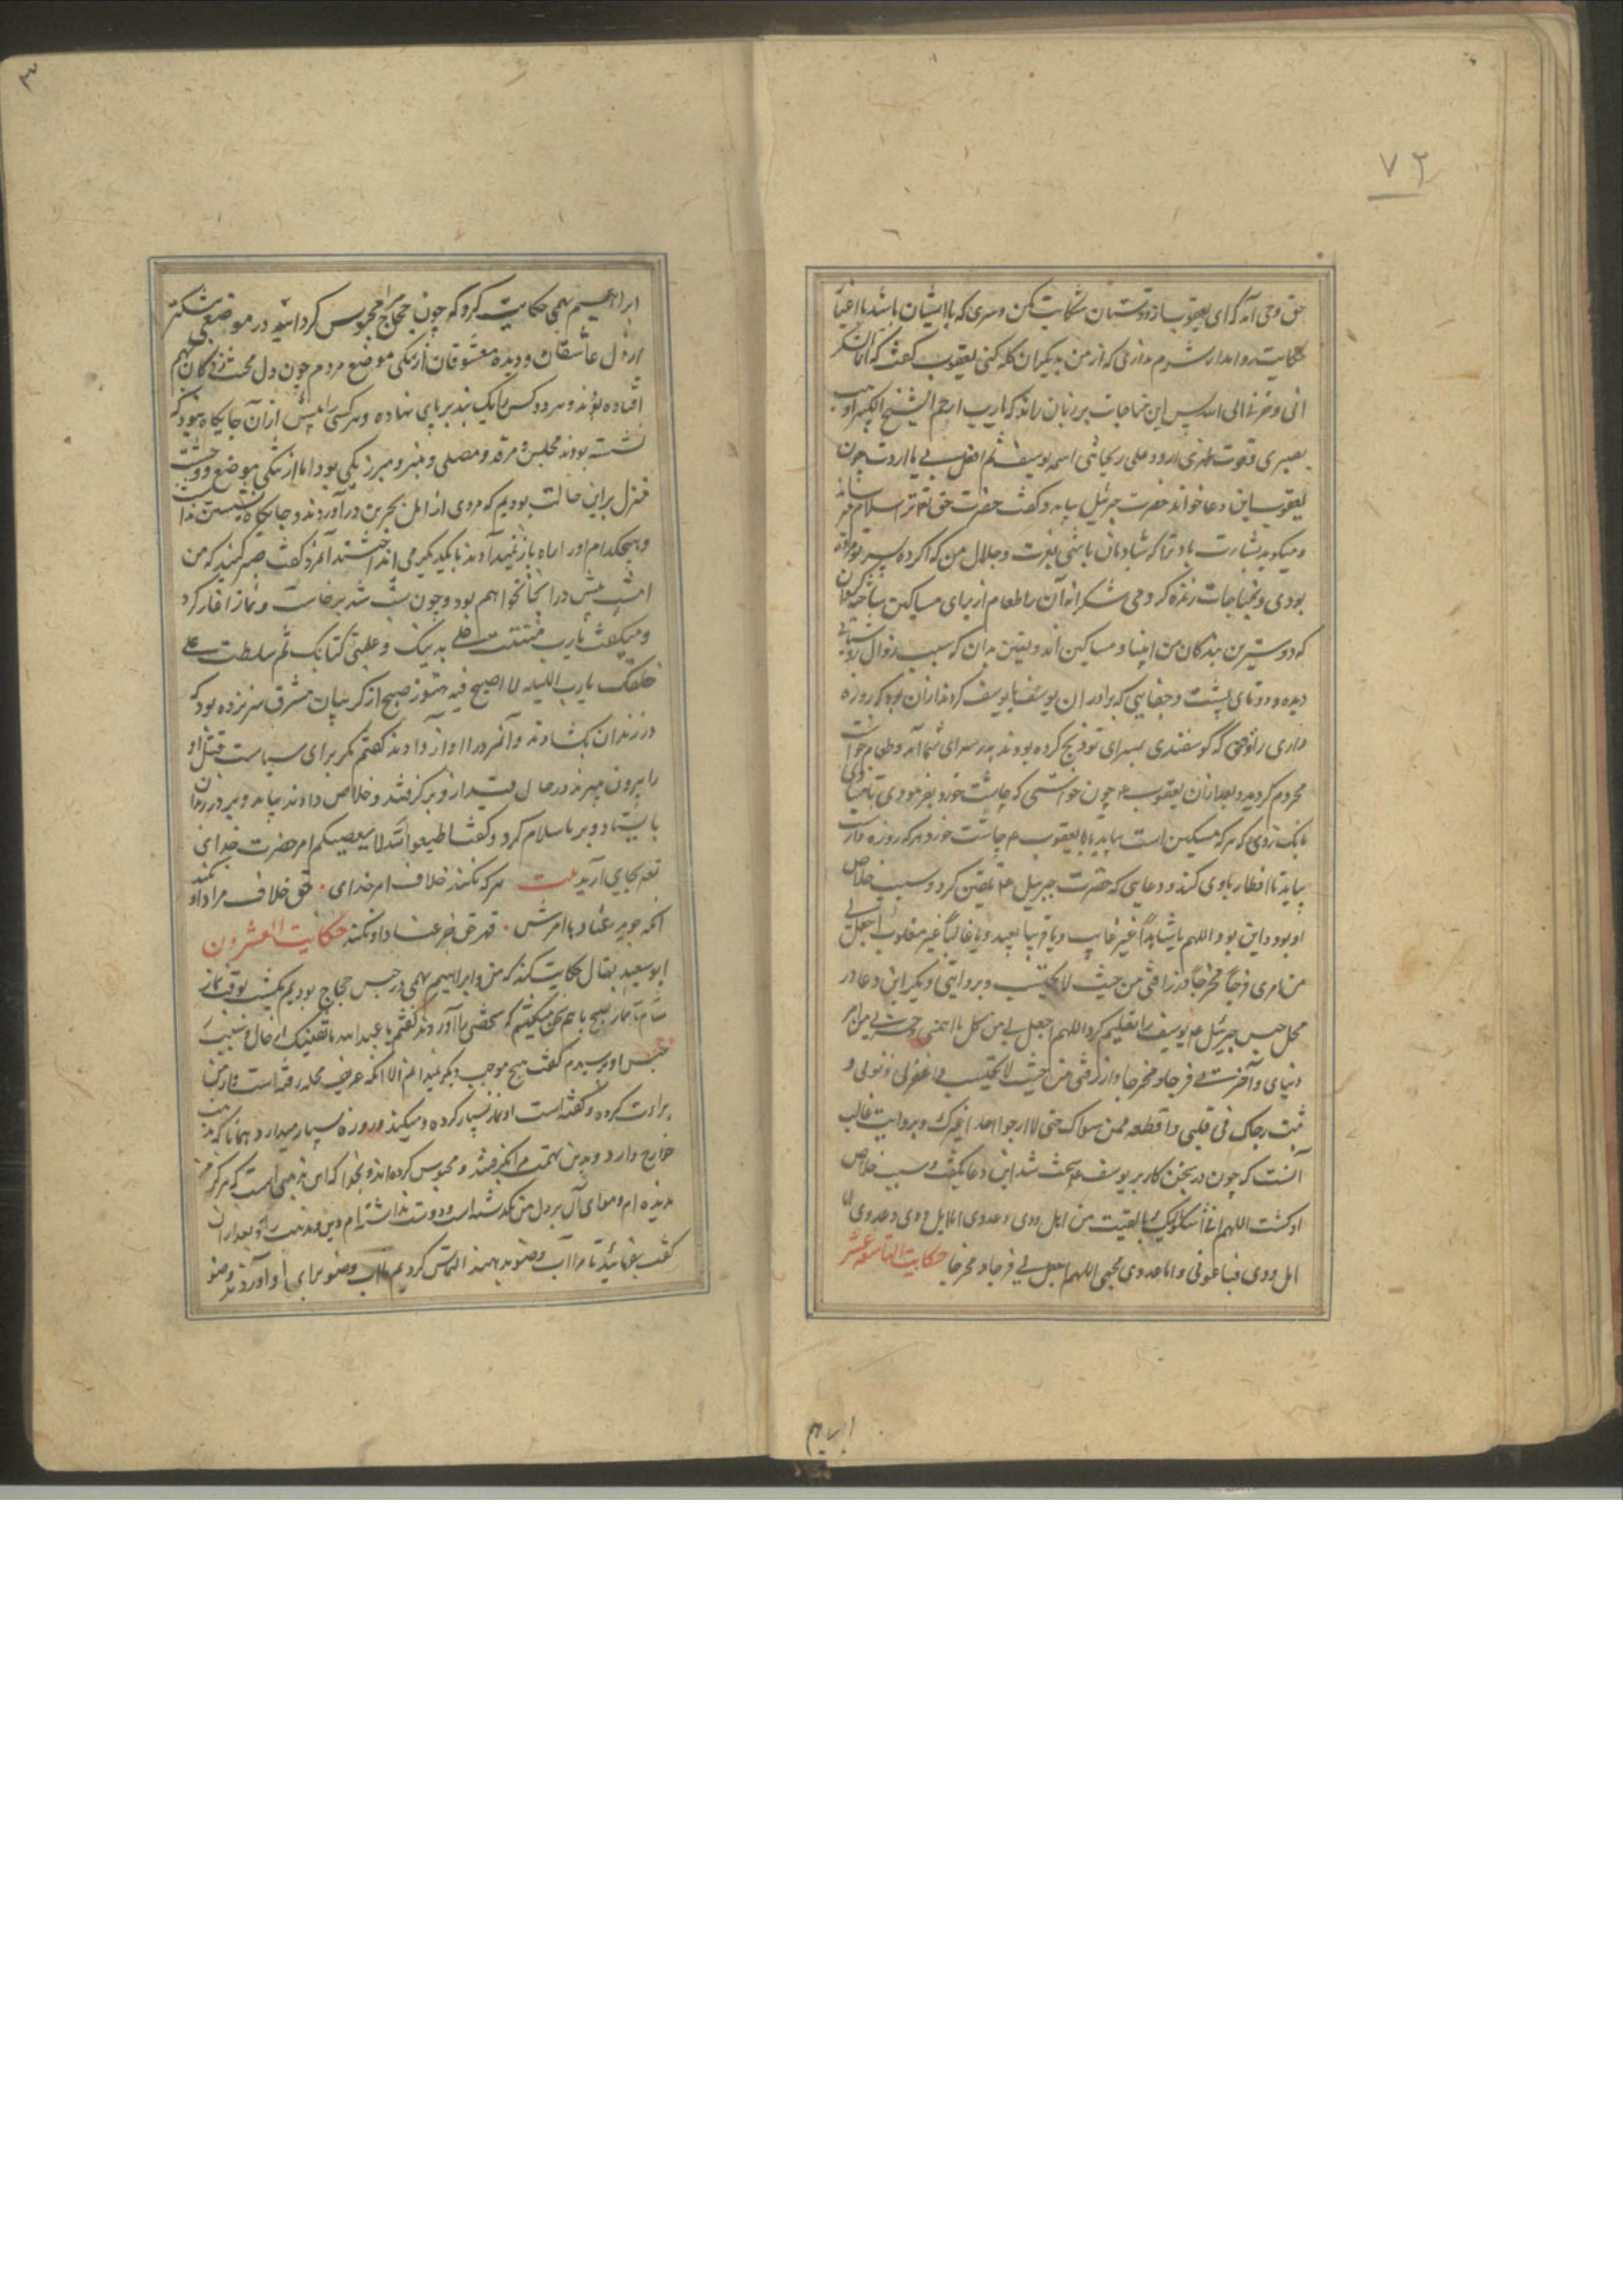 ۷۲
حق وحی آمد که ای یعقوب از دوستان شکایت مکن و سری که با ایشان باشد با اغیار
حکایت روا مدار شرم نداری که از من بدیگران کله کنی یعقوب گفت که انما اشکو
بثی و حزنی الی الله پس این مناجات بر زبان راند که یارب ارحم الشیخ الکبیر اذهب
بصری وقوست ظهری اردد علی ریحانتی اسمه یوسف ثم افعل بی ما اردت چون
یعقوب این دعا خواند حضرت جبرئیل بیامد و گفت حضرت حق تعالی ترا سلام میرساند
و میکوید بشارت باد ترا که شادمان باشی بعزت و جلال من که اکر ده پسر تو مرده
بودی زنده کردمی شکرانه آن را طعام از برای مساکین
که دوسترین بندکان من انبیا و مساکین اند و یقین بدان که سبب زوال روشنائی
دیده و دوتای پشت و جفایی که برادران یوسف با یوسف کردند ازان بود که روزه
داری را کوسفندی بسرای تو ذبح کرده بودند بدر سرای شما آمد و طعام خواست
محروم کردید و بعد ازان یعقوب ع چون خواستی که چاشت خورد بفرمودی تا منادی
بانک زدی که هرکه مسکین است بیاید با یعقوب ع چاشت خورد و هرکه روزه دارست
بیاید تا افطار با وی کند و دعایی که حضرت جبرئیل ع تلقین کرد و سبب خلاص
او بود این بود اللهم یا شاهداً غیر غایب ویا قریباً غیر بعید ویا غالباً غیر مغلوب اجعل لی
من امری فرجاً و مخرجاً وارزقنی من حیث لا یحتسب و بروایتی دیگر این دعا در
محل حبس جبرئیل ع یوسف را تعلیم کرد اللهم اجعل لی من کل ما اهمنی و حزننی من امر
دنیای و آخرتی فرجا و مخرجا وارزقنی من حیث لا یحتسب و اغفرلی ذنوبی و
ثبت رجاک فی قلبی واقطعه ممن سواک حتی لا ارجوا احدا غیرک و بروایت غالب
آنست که چون در سجن کار بر یوسف ع سخت شد این دعا بگفت و سبب خلاص
او کشت اللهم انی اشکو الیک ما لقیت من اهل ودی وعدوی اما اهل ودی
اهل ودی فباعونی واما عدوی اللهم اجعل لی فرجا و مخرجا حکایت التاسعه عشر
ابراهیم
۳
ابراهیم تیمی حکایت کرد که چون حجاج مرا محبوس کردانید در موضعی تنکتر
از دل عاشقان و دیده معشوقان از تنکی موضع مردم چون دل بر هم
افتاده بودند و هر دو کس را یک بند بر پای نهاده و هر کسی را بیش ازان جایکاه نبود که
نشسته بودند مجلس و مرقد و مصلی و منبر و مبرز یکی بود اما از تنکی موضع و وحشت
منزل براین حالت بودیم که مردی از اهل بحرین در آوردند و جایگاه نشستن نداشت
و هیچکدام اورا راه باز نمیدادند با یکدیگر می انداختند آنمرد گفت صبر کنید که من
امشب بیش در اینجا نخواهم بود و چون شب شد برخاست و نماز آغاز کرد
و میگفت یارب مننت علی بدینک و علمتنی کتابک ثم سلطت علی
خلقک یارب اللیله لا اصبح فیه هنوز صبح از کریبان مشرق سر نزده بود که
در زندان بکشادند و آنمرد را آواز دادند گفتم مکر برای سیاست قتل او
را بیرون میبرند در حال قید ازو بر گرفتند و خلاص دادند بیامد و بر در زندان
بایستاد و بر ما سلام کرد و گفت اطیعوا الله لا یعصیکم امر حضرت خدای
تعالی بجای آرید بیت هر که نکند خلاف امر خدای . حق خلاف مراد او نکند
آنکه جوید عناد با امرش . قهر حق جز عناد او نکند حکایت العشرون
ابو سعید بقال حکایت کند که من و ابراهیم تیمی در حبس حجاج بودیم یکشب بوقت نماز
شام تا نماز صبح با هم سخن میگفتیم که شخصی را آوردند گفتم یا عبدالله ما قضیتک از حال و سبب
حبس او پرسیدم گفت هیچ موجب دیگر نمیدانم الا آنکه عریف محله رفته است و از من
براءت کرده و گفته است او نماز بسیار کرده و میکند و روزه بسیار میدارد همانا که مذهب
خوارج دارد و بدین تهمت مرا بگرفتند و محبوس کرده اند و بخدا که این مذهبی است که هرگز من
ندیده ام و هوای آن بر دل من نگذشته است و دوست نداشته ام و بعد ازان
گفت بفرمائید تا مرا آب وضو بدهند التماس کردیم تا آب وضو برای او آوردند وضو